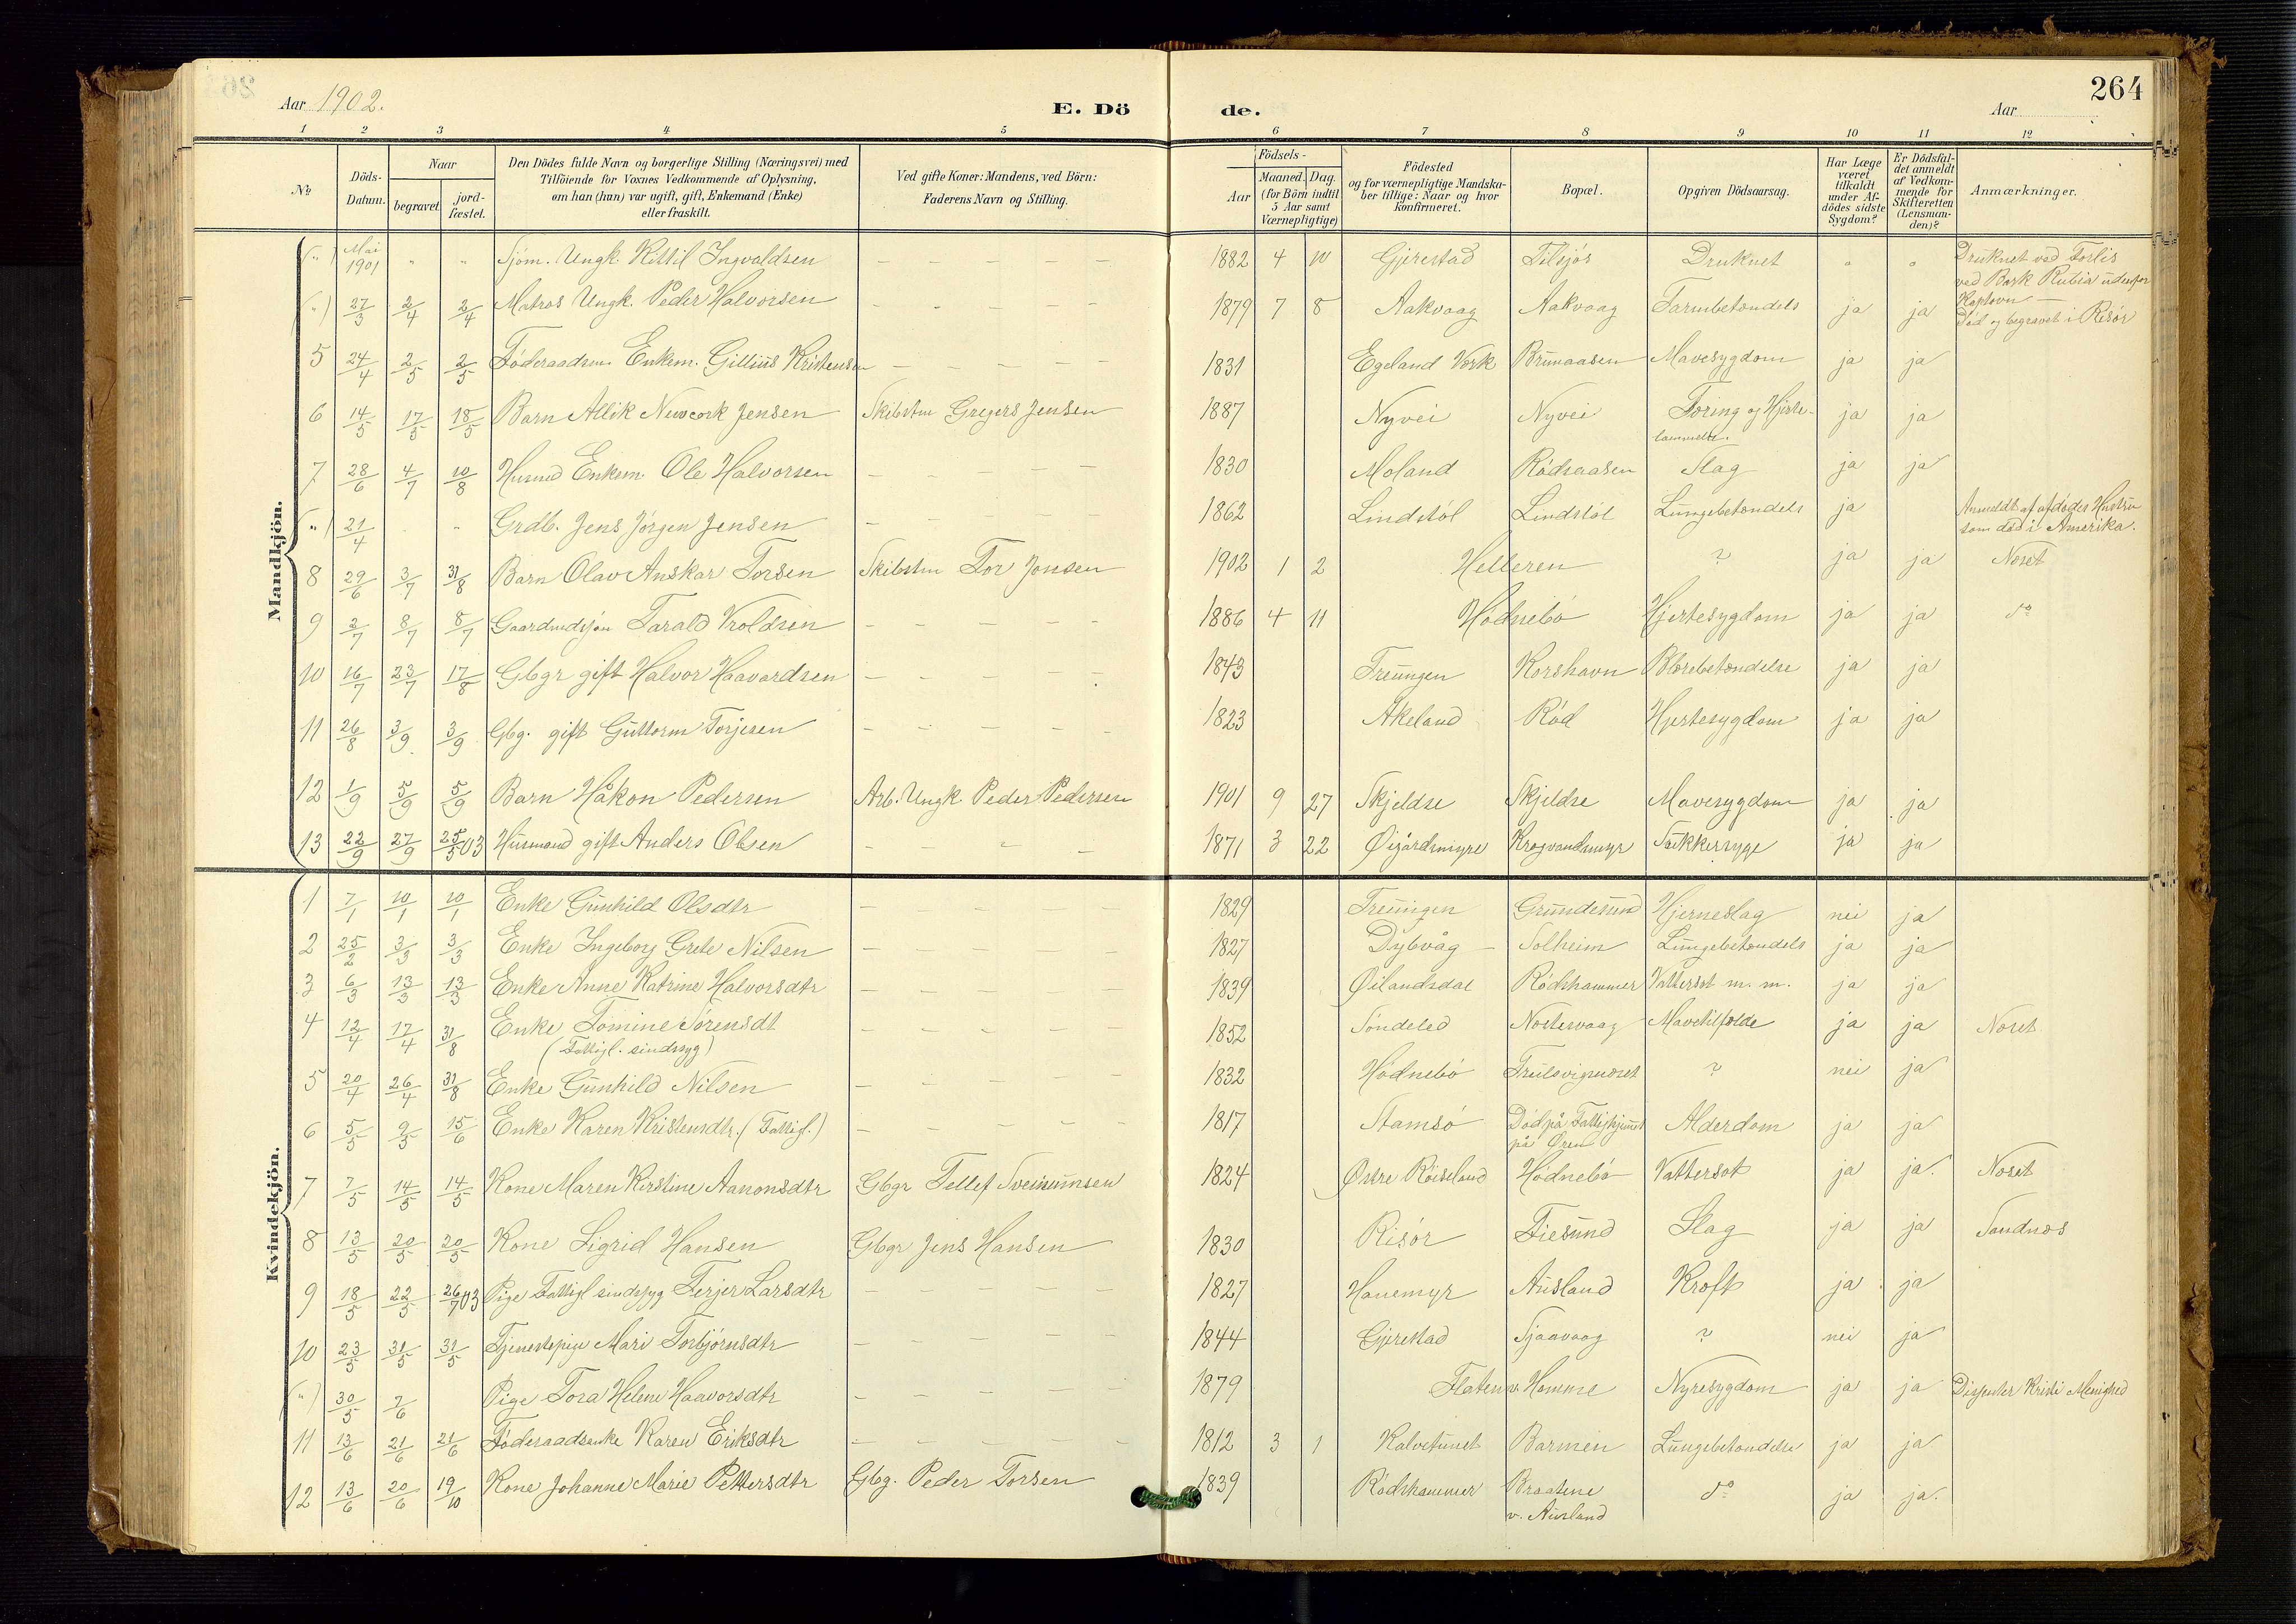 264
Aar 1902.
E. Dö
de.
Aar
1 2 3 4 5 6 7 8 9 10 11 12
No
Döds-Datum.
Naar
begravet
jordfæstet.
Den Dödes fulde Navn og borgerlige Stilling (Næringsvei) med
Tilföiende for Voxnes Vedkommende af Oplysning,
om han (hun) var ugift, gift, Enkemand (Enke)
eller fraskilt.
Ved gifte Koner: Mandens, ved Börn:
Faderens Navn og Stilling.
Födsels-
Aar
Maaned. Dag.
(for Börn indtil
5 Aar samt
Værnepligtige)
Födested
og for værnepligtige Mandska-
ber tillige: Naar og hvor
konfirmeret.
Bopæl.
Opgiven Dödsaarsag.
Har Læge
været
tilkaldt
under Af-
dödes sidste
Sygdom?
Er Dödsfal-
det anmeldt
af Vedkom-
mende for
Skifteretten
(Lensman-
den)?
Anmærkninger.
Mandkjön.
(") Mai 1901 " " Sjöm. Ungk. Kittil Ingvaldsen — — — — 1882 4 10 Gjerestad Filsjös Druknet " " Druknet ved Forlis
ved Bark Rubia udenfor
Kaptovn —
(") 27/3 2/4 2/4 Matros Ungk. Peder Halvorsen — — — — 1879 7 8 Aakvaag Aakvaag Tarmbetændels ja ja Död og begravet i Risör
5 24/4 2/5 2/5 Föderaadsm. Enkem. Gillius Kristensen — — — — 1831 Egeland Verk Brunaasen Mavesygdom ja ja
6 14/5 17/5 18/5 Barn Allik Newcork Jensen Skibstm Gregers Jensen 1887 Nyvei Nyvei Tæring og Hjerte-
lammelse. ja ja
7 28/6 4/7 10/8 Husmd Enkem. Ole Halvorsen — — — — 1830 Moland Rödsaasen Slag ja ja
(") 21/4 " " Grdb. Jens Jörgen Jensen — — — — 1862 Lindstöl Lindstöl Lungebetændels ja Anmeldt af afdödes Hustru
som död i Amerika.
8 29/6 3/7 31/8 Barn Olav Anskar Torsen Skibstm Tor Jonsen 1902 1 2 Helleren ? ja ja Næset
9 2/7 8/7 8/7 Gaardmdsön Tarald Vroldsen — — — — 1886 4 11 Hödnebö Hjertesygdom ja ja do
10 16/7 23/7 17/8 Gbgr gift Halvor Haavardsen — — — — 1843 Treungen Korshavn Blærebetændelse ja ja
11 26/8 3/9 3/9 Gbg. gift Guttorm Torjesen — — — — 1823 Akeland Röd Hjertesygdom ja ja
12 1/9 5/9 5/9 Barn Håkon Pedersen Arb. Ungk. Peder Pedersen 1901 9 27 Skjeldse Skjeldse Mavesygdom ja ja
13 22/9 27/9 25/5 03 Husmand gift Anders Olsen — — — — 1871 3 22 Øigårdsmyre Krogvandsmyr Sukkersyge ja ja
Kvindekjön.
1 7/1 10/1 10/1 Enke Gunhild Olsdtr — — — — 1829 Treungen Grundesund Hjerneslag nei ja
2 25/2 3/3 3/3 Enke Ingeborg Grete Nilsen — — — — 1827 Dybvåg Solheim Lungebetændels ja ja
3 6/3 13/3 13/3 Enke Anne Katrine Halvorsdtr — — — — 1839 Øilandsdal Rödshammer Vattersot m. m. ja ja
4 12/4 17/4 31/8 Enke Tomine Sörensdt
(Fattigl. sindssyg) — — — — 1852 Söndeled Nostervaag Mavetilfælde ja ja Næset
5 20/4 26/4 31/8 Enke Gunhild Nilsen — — — — 1832 Hödnebö Trulsvignæset ? nei ja
6 5/5 9/5 15/6 Enke Karen Kristensdtr. (Fattigl.) — — — — 1817 Stamsö Död på Fattighjemmet
på Øren Alderdom ja ja
7 7/5 14/5 14/5 Kone Maren Kirstine Aanonsdtr Gbgr Tellef Sveinumsen 1824 Østre Röiseland Hödnebö Vattersot ja ja. Næset
8 13/5 20/5 20/5 Kone Sigrid Hansen Gbgr Jens Hansen 1830 Risör Fiesund Slag ja ja Sandnæs
9 18/5 22/5 26/7 03 Pige Fattigl sindssyg Terjer Larsdtr — — — — 1827 Hanemyr Ausland Kræft ja ja
10 23/5 31/5 31/5 Tjenestepige Mari Torbjörnsdtr — — — — 1844 Gjerestad Sjaavaag ? nei ja
(") 30/5 7/6 Pige Tora Helene Haavorsdtr — — — — 1879 Flaten v. Homme Nyresygdom ja ja Dissenter Kristi Menighed
11 13/6 21/6 21/6 Föderaadsenke Karen Eriksdtr — — — — 1812 3 1 Kalvetunet Barmen Lungebetændelse ja ja
12 13/6 20/6 19/10 Kone Johanne Marie Pettersdtr Gbg. Peder Torsen 1839 Rödshammer Braatene
v. Ausland do ja ja.